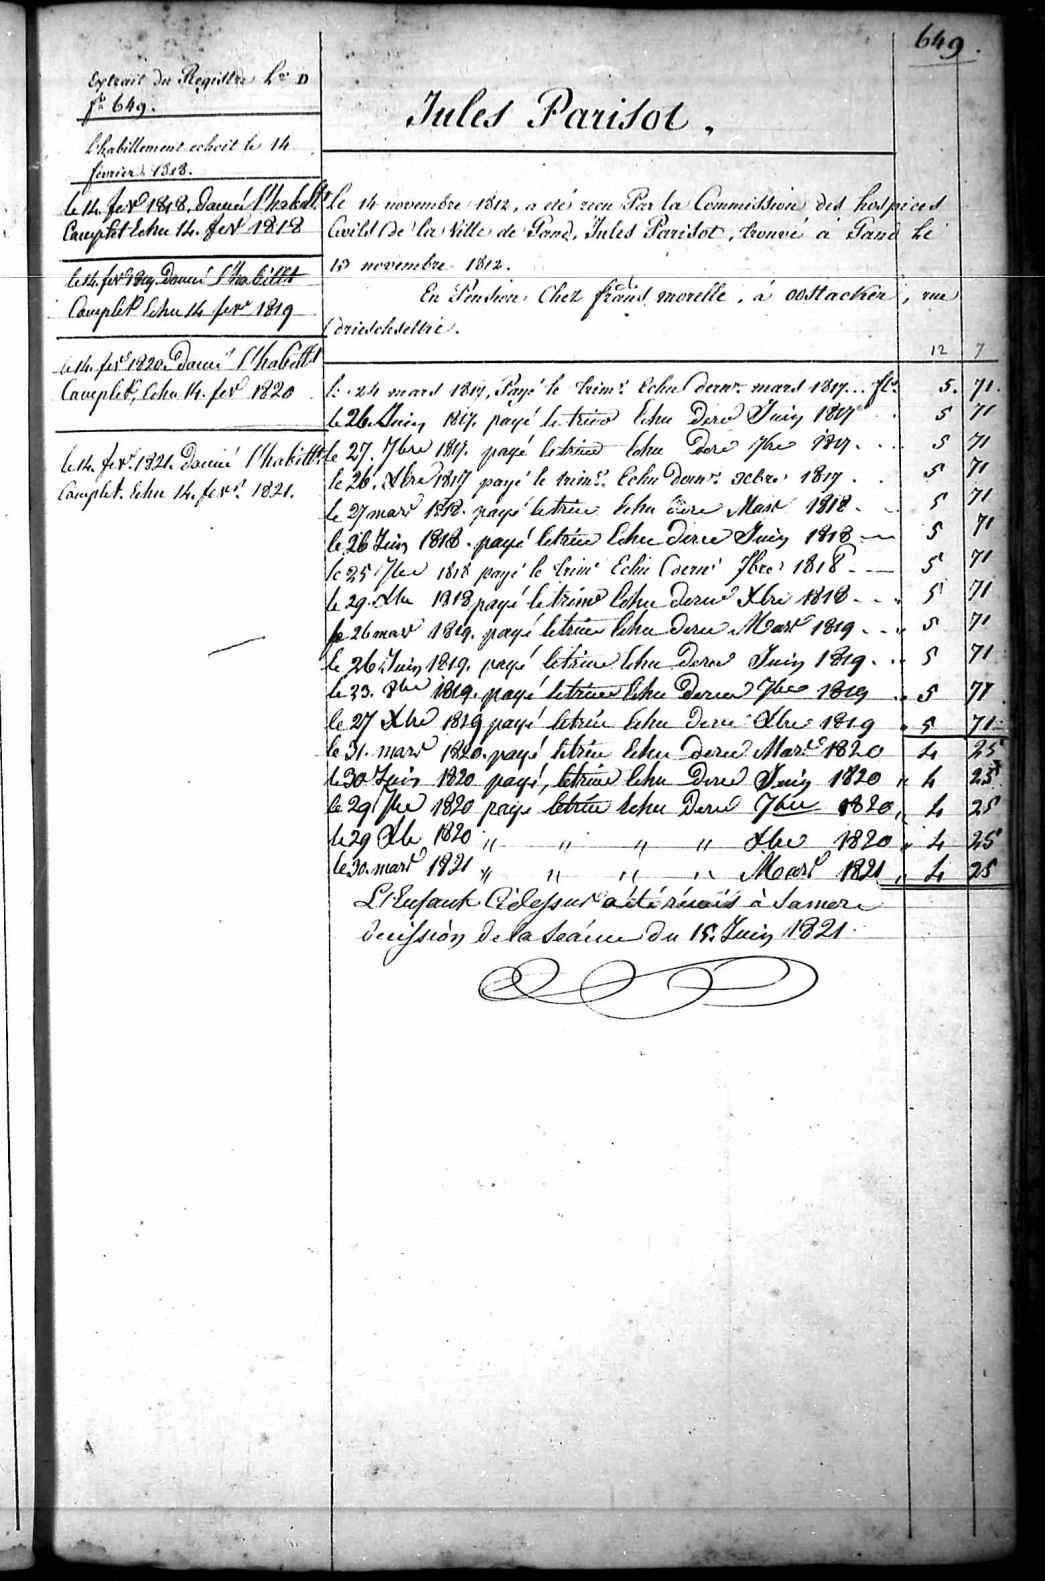 649.
Extrait du Registre Lre D
fo 649.
L'habillement echoit le 14
fevrier 1818.
le 14. fevr 1818. donné l'habillt
Complet Echu 14. fevr 1818
le 14. fevr 1819. Donné l'habillt
Complet Echu 14 fevr 1819
le 14. fevr 1820. Donné l'habillt
Complet, Echu 14. fevr 1820
le 14. fevr. 1821. Donné l'habillt
Complet. Echu 14. fevr. 1821.
Jules Parisot.
Le 14 novembre 1812, a eté recu Par la Commission des hospices
Civils de la Ville de Gand, Jules Parisot, trouvé à Gand le
13 novembre 1812.
En Pension Chez frans morelle, à oostacker, rue
drieschseltre.
12 7
le 24 mars 1817, Payé le trimre Echu dernr mars 1817... fls 5. 71.
le 26. Juin 1817. payé le trim Echu dere Juin 1817 5 71
le 27. 7bre 1817. payé le trim Echu dere 7bre 1817. 5 71
le 26. Xbre 1817 payé le trimre Echu dernr Xbre 1817 5 71
le 27 mars 1818. payé le trim Echu dere Mars 1818 5 71
le 26 Juin 1818. payé le trim Echu dere Juin 1818 5 71
le 25 7bre 1818 payé le trimre Echu dernr 7bre 1818 5 71
le 29. Xbre 1818 payé le trim Echu dere Xbre 1818 5 71
le 26 mars 1819. payé le trim Echu dere Mars 1819 " 5 71
le 26 Juin 1819. payé le trim Echu Dere Juin 1819 " 5 71
le 23. 8bre 1819. payé le trim Echu Dere 7bre 1819 " 5 71
le 27 Xbre 1819 payé le trim Echu dere Xbre 1819 " 5 71
le 31. mars 1820. payé le trim Echu dere Mars 1820 4 25
le 30 Juin 1820 payé, le trim Echu Dere Juin 1820 " 4 25
le 29 7bre 1820 payé le trim Echu Dere 7bre 1820 " 4 25
le 29 Xbre 1820 " " " " Xbre 1820 " 4 25
le 30. mars 1821 " " " " Mars 1821 " 4 25
L'Enfant Cidessus a été remis à sa mere
decission de la seance du 15. Juin 1821.